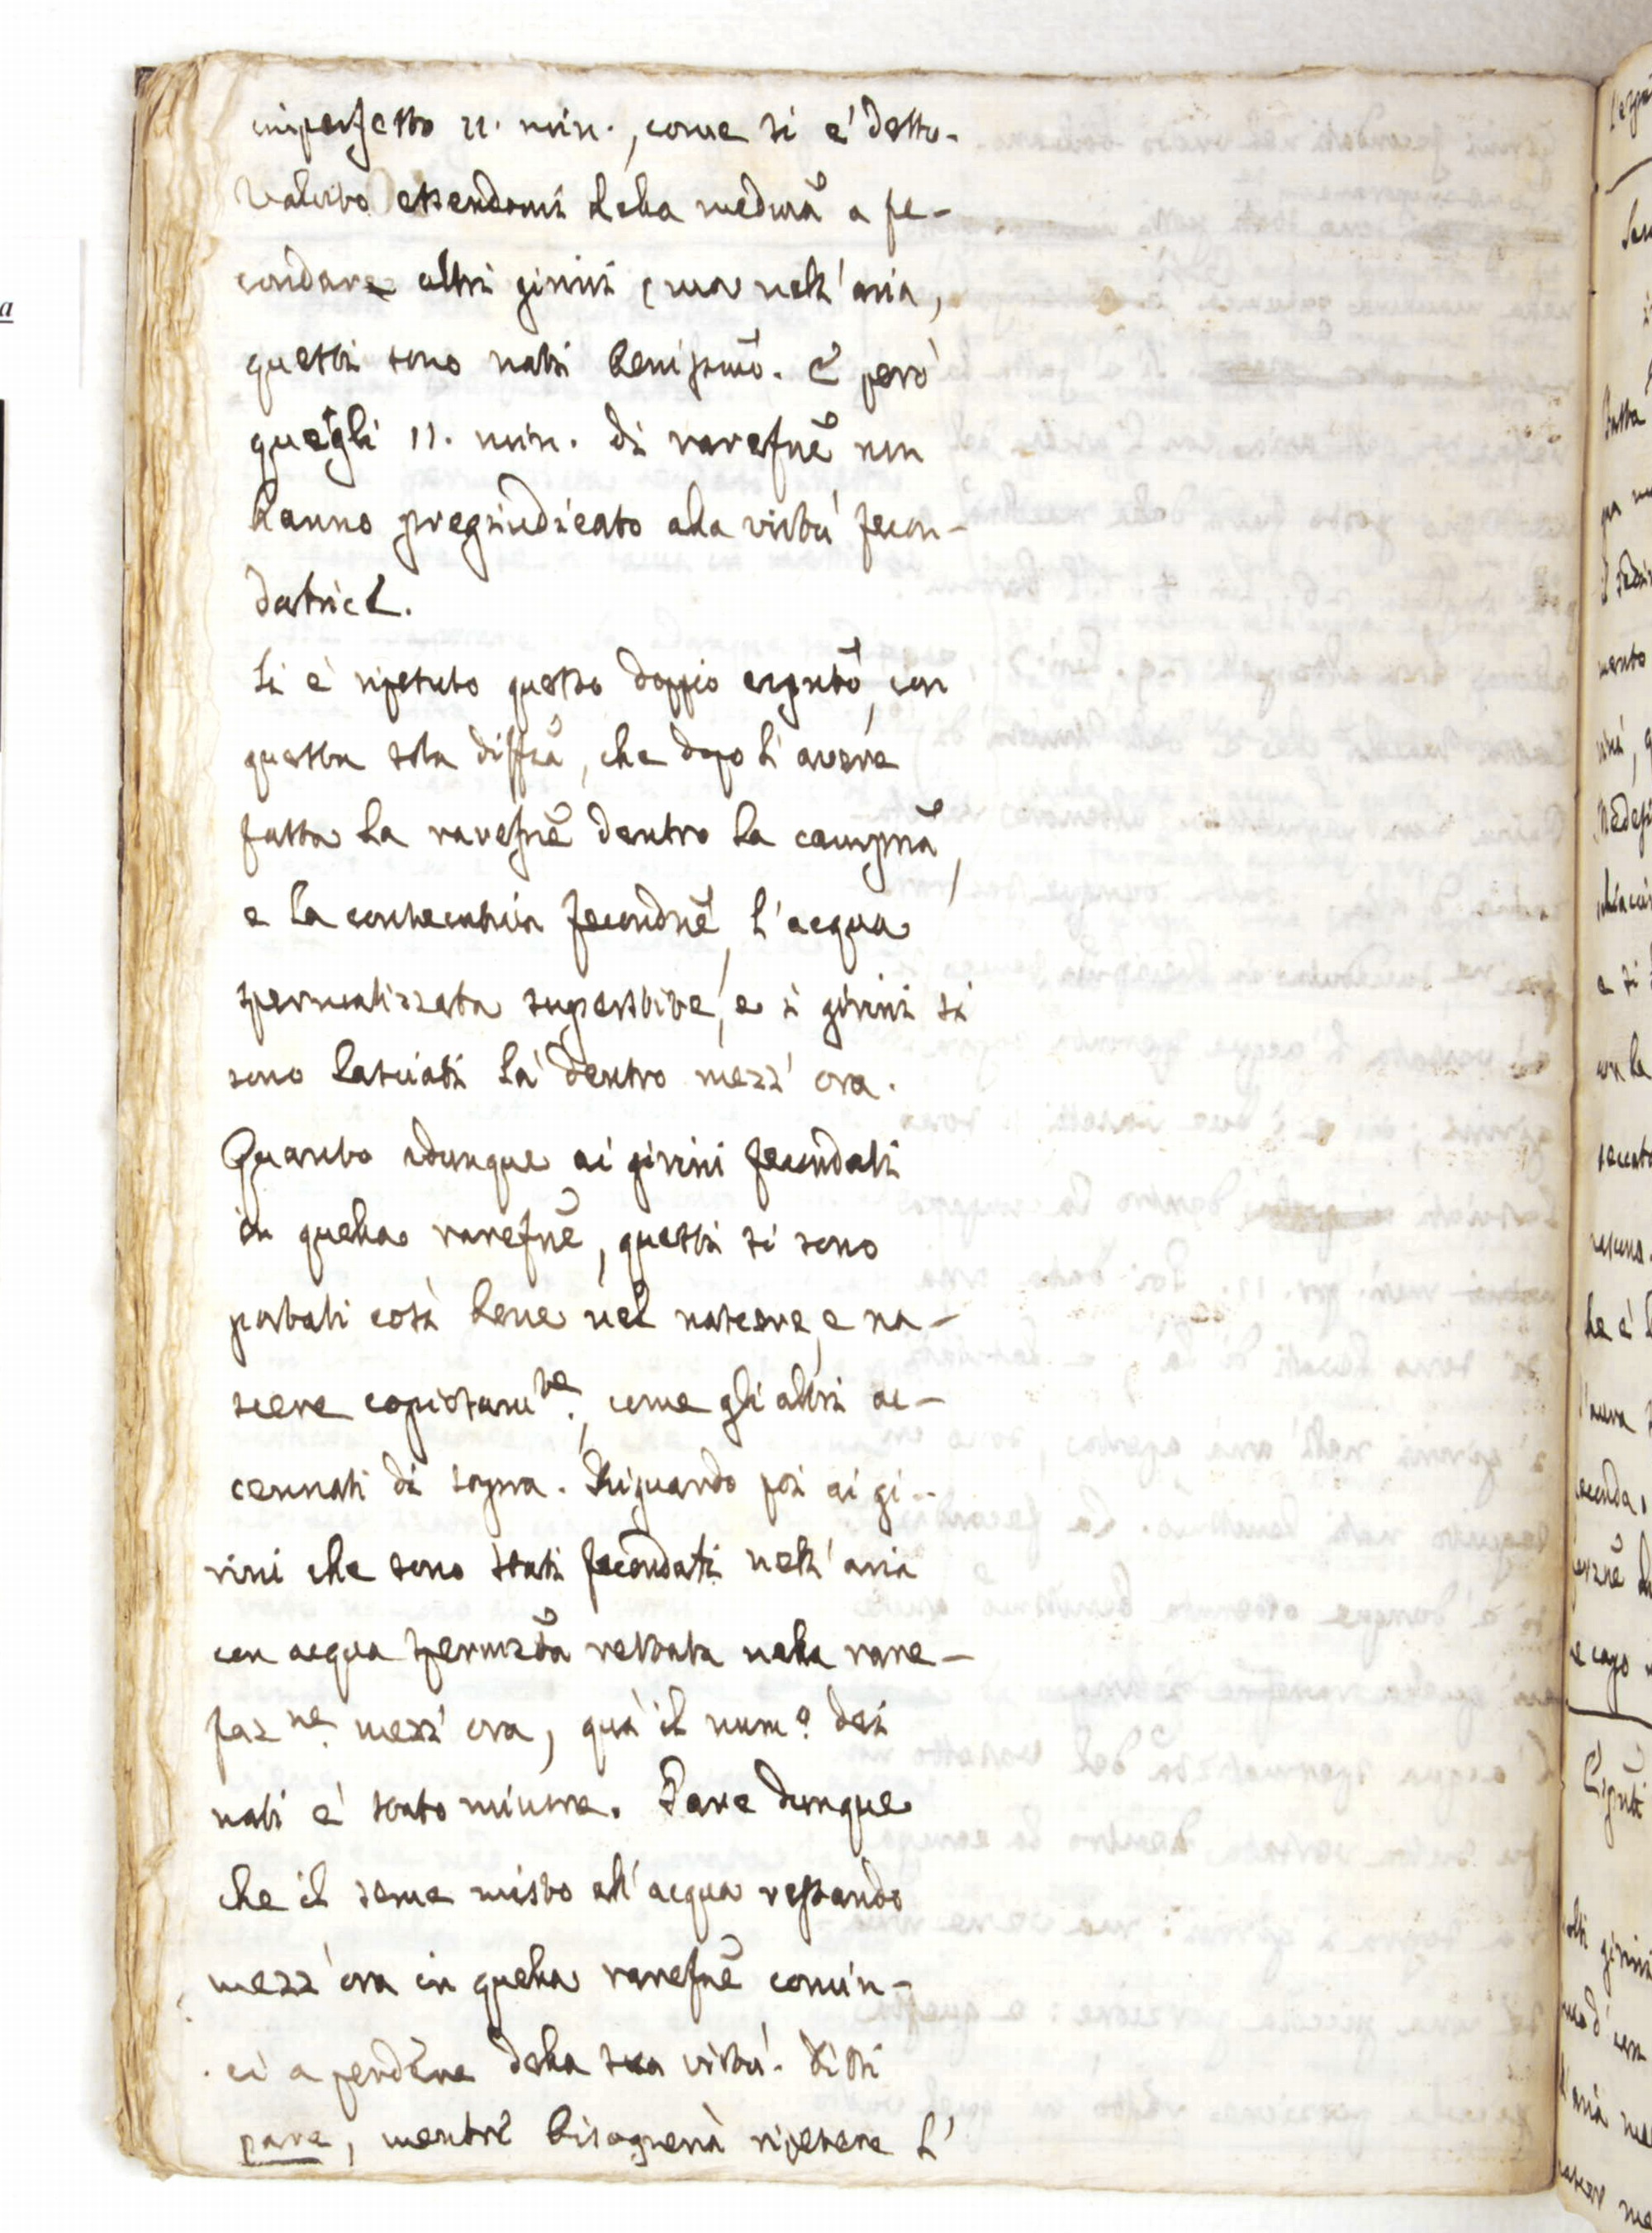 imperfetto 11. min., come si e' detto.
Valuto essendomi della medma a fe-
condare altri girini, ma nell'aria,
questi sono nati benissmo. E però
quegli 11. min. di rarefne non
hanno pregiudicato alla virtù fecon-
datrice.
Si è ripetuto questo doppio espmto, con
questa sola diffza, che dopo l'avere
fatta la rarefne dentro la campna,
e la consecutiva fecondne, l'acqua
spermatizzata superstite, e i girini si
sono lasciati là dentro mezz'ora.
Quanto adunque ai girini fecondati
in quella rarefne, questi si sono
portati così bene nel nascere, e na-
scere copiosamte, come gli altri ac-
cennati di sopra. Riguardo poi ai gi-
rini che sono stati fecondati nell'aria
con acqua spermzta restata nella rare-
fazne mezz'ora, quì il numo dei
nati e' stato minore. Pare dunque
che il seme misto all'acqua restando
mezz'ora in quella rarefne comin-
ci a perdere della sua virtù. Dissi
pare, mentre bisognerà ripetere l'